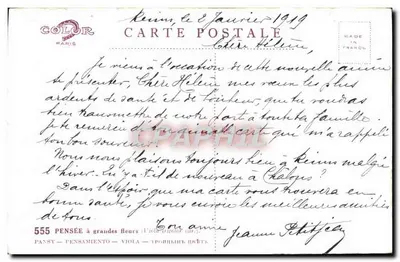 Reims, le 2 Janvier 1919
COLOR
PARIS
CARTE POSTALE
MADE IN FRANCE
Chère Hélène,
Je viens à l'occasion de cette nouvelle année
te présenter, Chère Hélène mes vœux les plus
ardents de santé et de bonheur, que tu voudras
bien transmettre de notre part à toute ta famille.
Je te remercie de ta carte qui m'a rappelé
ton bon souvenir.
Nous nous plaisons toujours bien à Reims malgré
l'hiver. En y a-t-il de nouveau à Chalons?
Dans l'espoir que ma carte vous trouvera en
bonne santé, je vous envoie les meilleures amitiés
de tous
Ton amie
Jeanne Petitjean
555 PENSÉE à grandes fleurs
PANSY - PENSAMIENTO - VIOLA -